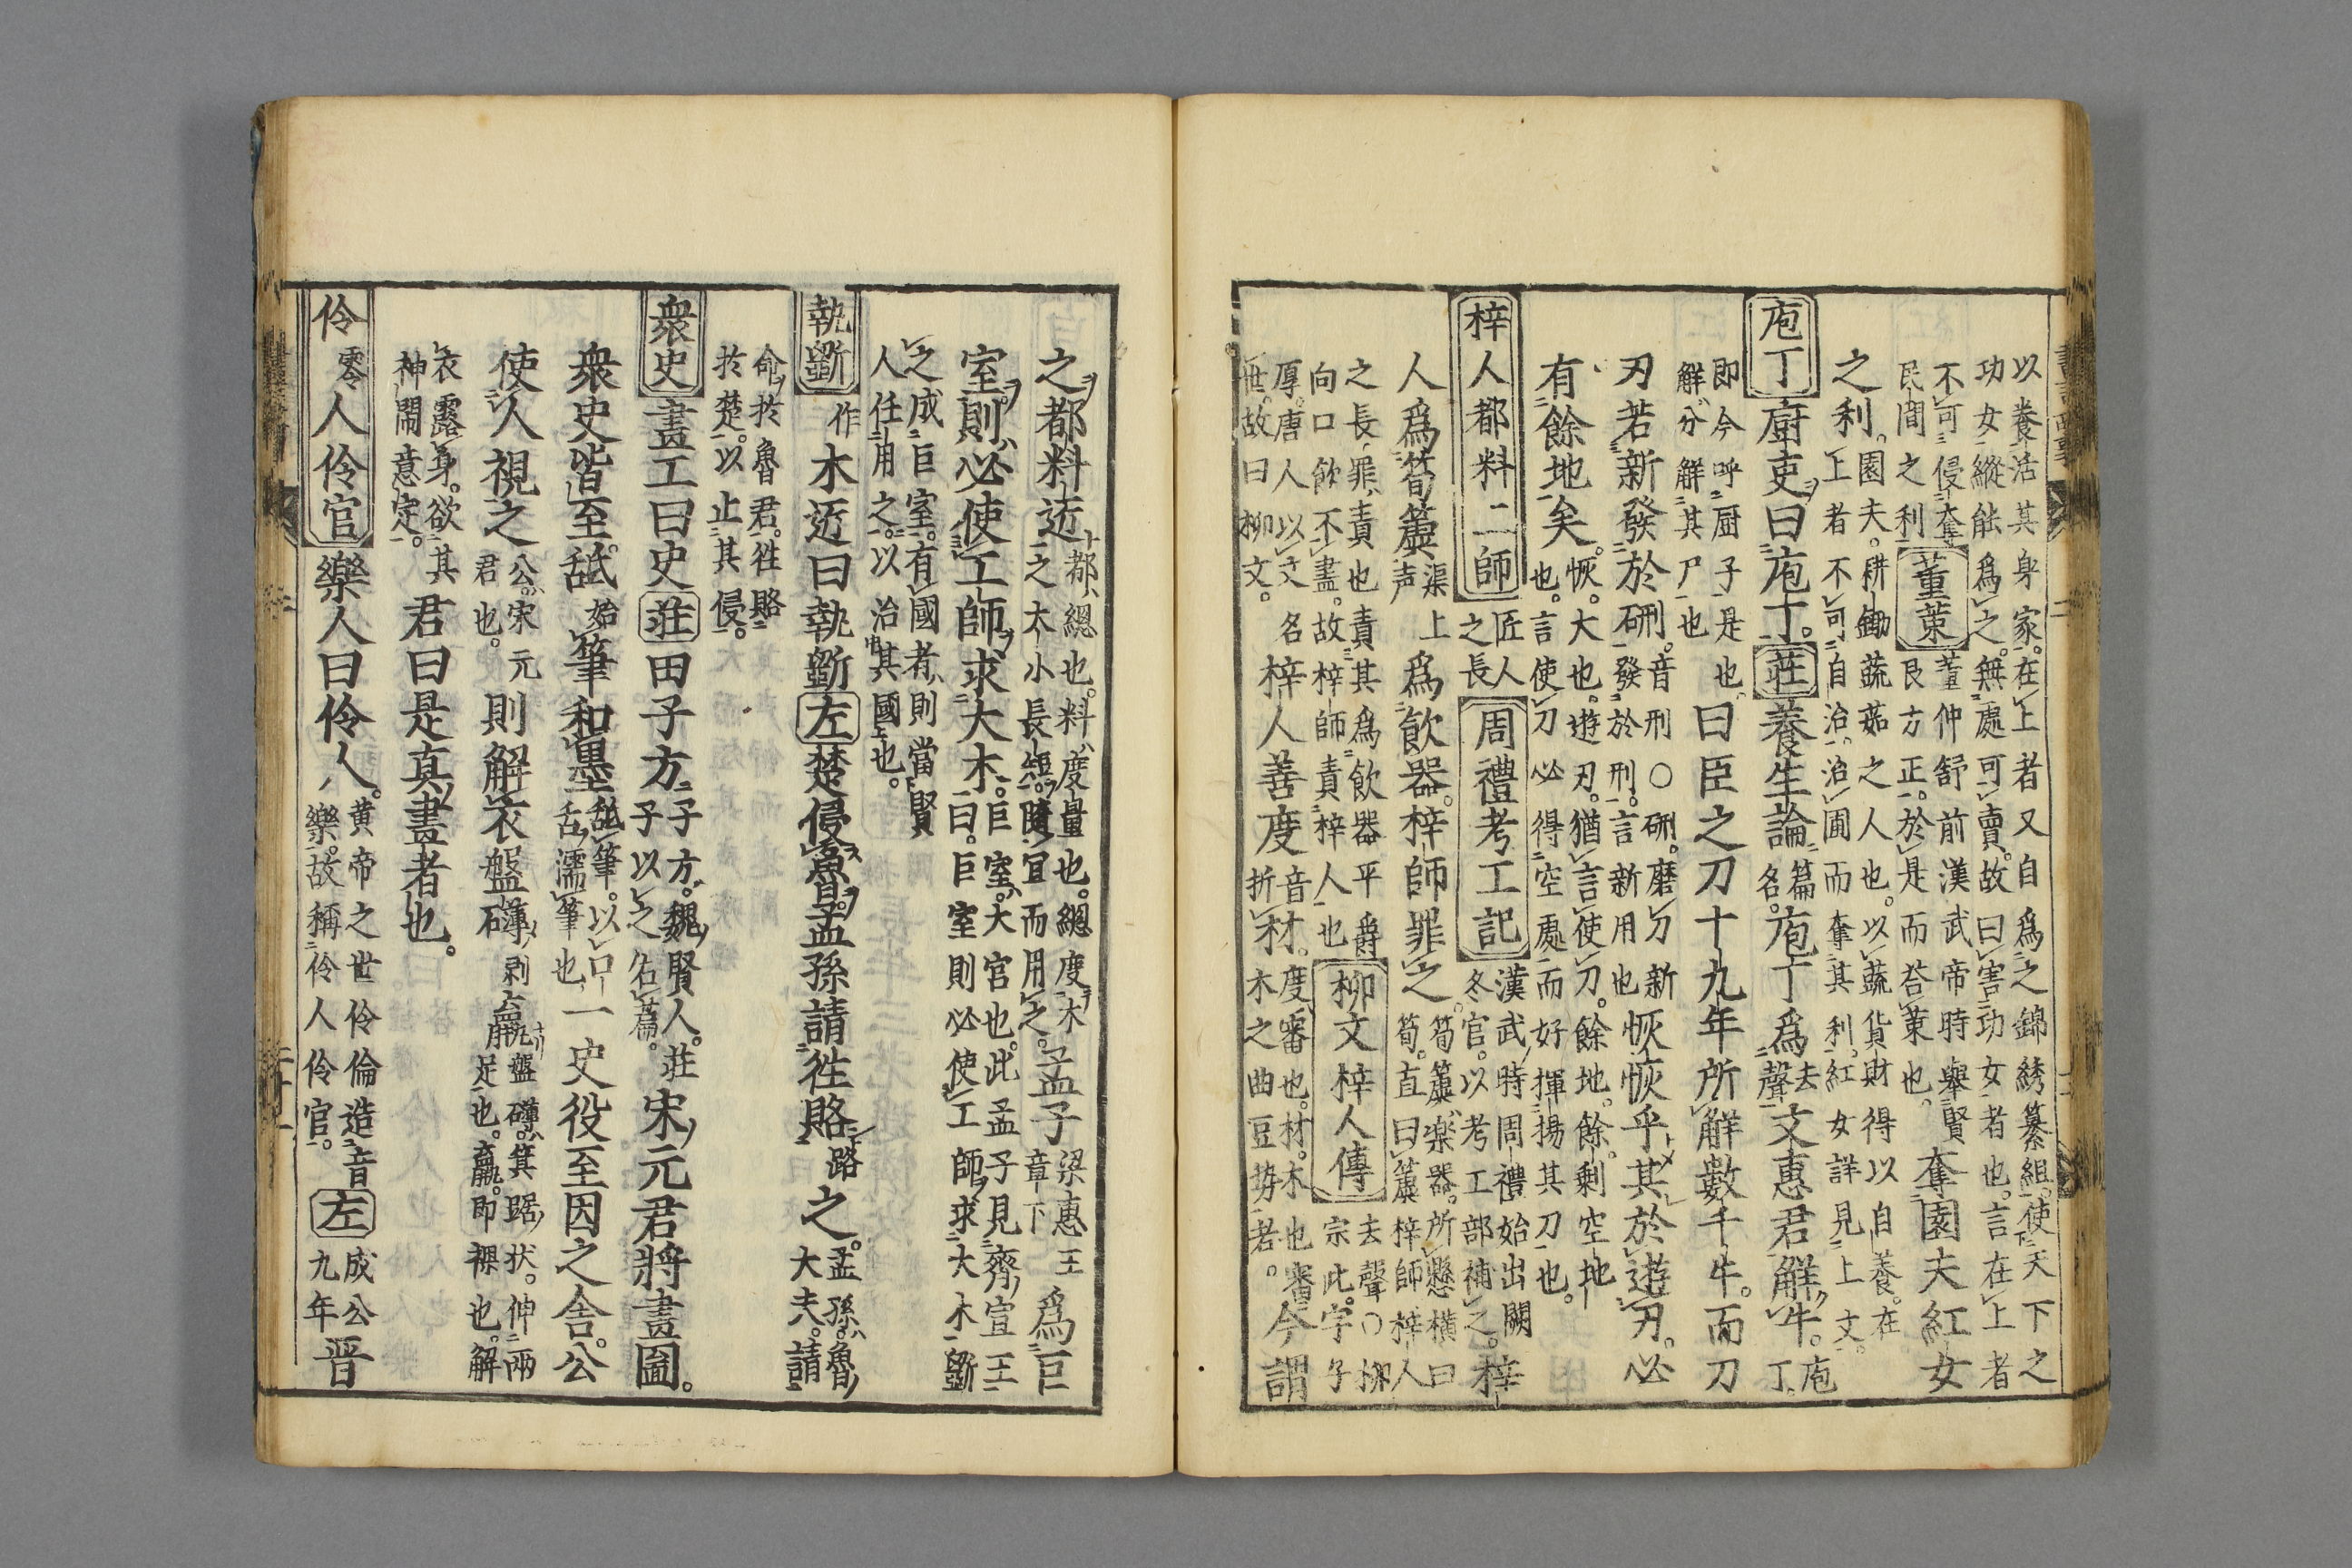 以養活其身家在上者又自爲之錦綉纂組使天下之
功女縱能爲之無處可賣故曰害功女者也言在上者
不可侵奪
民間之利
董菒
董仲舒前漢武帝時擧賢
良方正於是而荅菒也
奪園夫紅女
之利
園夫耕鋤蔬茹之人也以蔬貨財得以自養在
上者不可自治治圃而奪其利紅女詳見上文
庖丁
廚吏曰庖丁
莊
養生論
篇
名
庖丁爲
去
聲
文惠君解牛
庖
丁
即今呼厨子是也
解分解其尸也
曰臣之刀十九年所解數千牛而刀
刃若新發於硎
音刑○硎磨刀
發於刑言新用也
新
恢恢乎其於遊刃必
有餘地矣
恢大也遊刃猶言使刀餘地餘剩空地
也言使刀必得空處而好揮揚其刀也
梓人都料二師
匠人
之長
周禮考工記
漢武時周禮始出闕
冬官以考工部補之
梓
人爲筍簴
渠上
声
爲飮器梓師罪之
筍簴樂器所懸橫曰
筍直曰簴梓師梓人
之長罪責也責其爲飮器平爵
向口飮不盡故梓師責梓人也
柳文梓人傳
去聲○柳
宗此字子
厚唐人以文名
世故曰柳文
梓人善度
音
折
材
度審也材木也審
木之曲豆势者
今謂
之都料近
都總也料度量也總度木
之大小長短隨宜而用之
孟子
梁惠王
章下
爲巨
室則必使工師求大木
巨室大官也此孟子見齊宣王
曰巨室則必使工師求大木斵
之成巨室有國者則當賢
人任用之以治其國也
執斵
作
木近曰執斵
左
楚侵魯孟孫請徃賂
路
之
孟孫魯
大夫請
命於魯君徃賂
於楚以止其侵
衆史
畫工曰史
莊
田子方
子方魏賢人莊
子以之名篇
宋元君將畫圖
衆史皆至舐
始
筆和墨
舐筆以口
舌濡筆也
一史役至因之舍公
使人視之
公宋元
君也
則解衣盤礴
剥
臝
盤礴箕踞状伸兩
足也臝即裸也解
衣露身欲其
神閑意定
君曰是真畫者也
伶
零
人伶官
樂人曰伶人
黄帝之世伶倫造音
樂故稱伶人伶官
左
成公
九年
晋